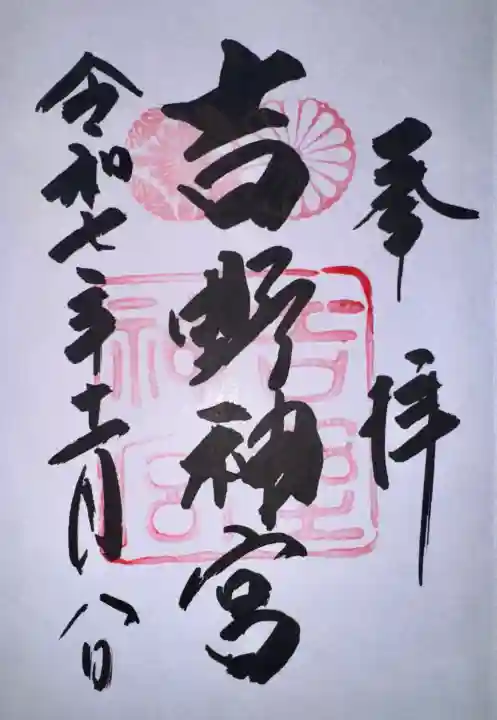 奉拝
吉野神宮
令和七年十一月八日
吉野
神宮